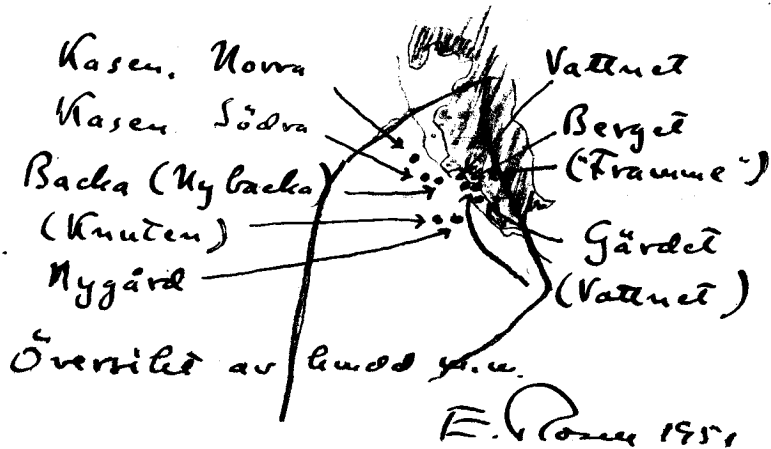 Kasen. Norra
Kasen Södra
Backa (Nybacka)
(Knuten)
Nygård
Vattnet
Berget
("Framme")
Gärdet
(Vattnet)
Översikt av
E. Rosen 1951